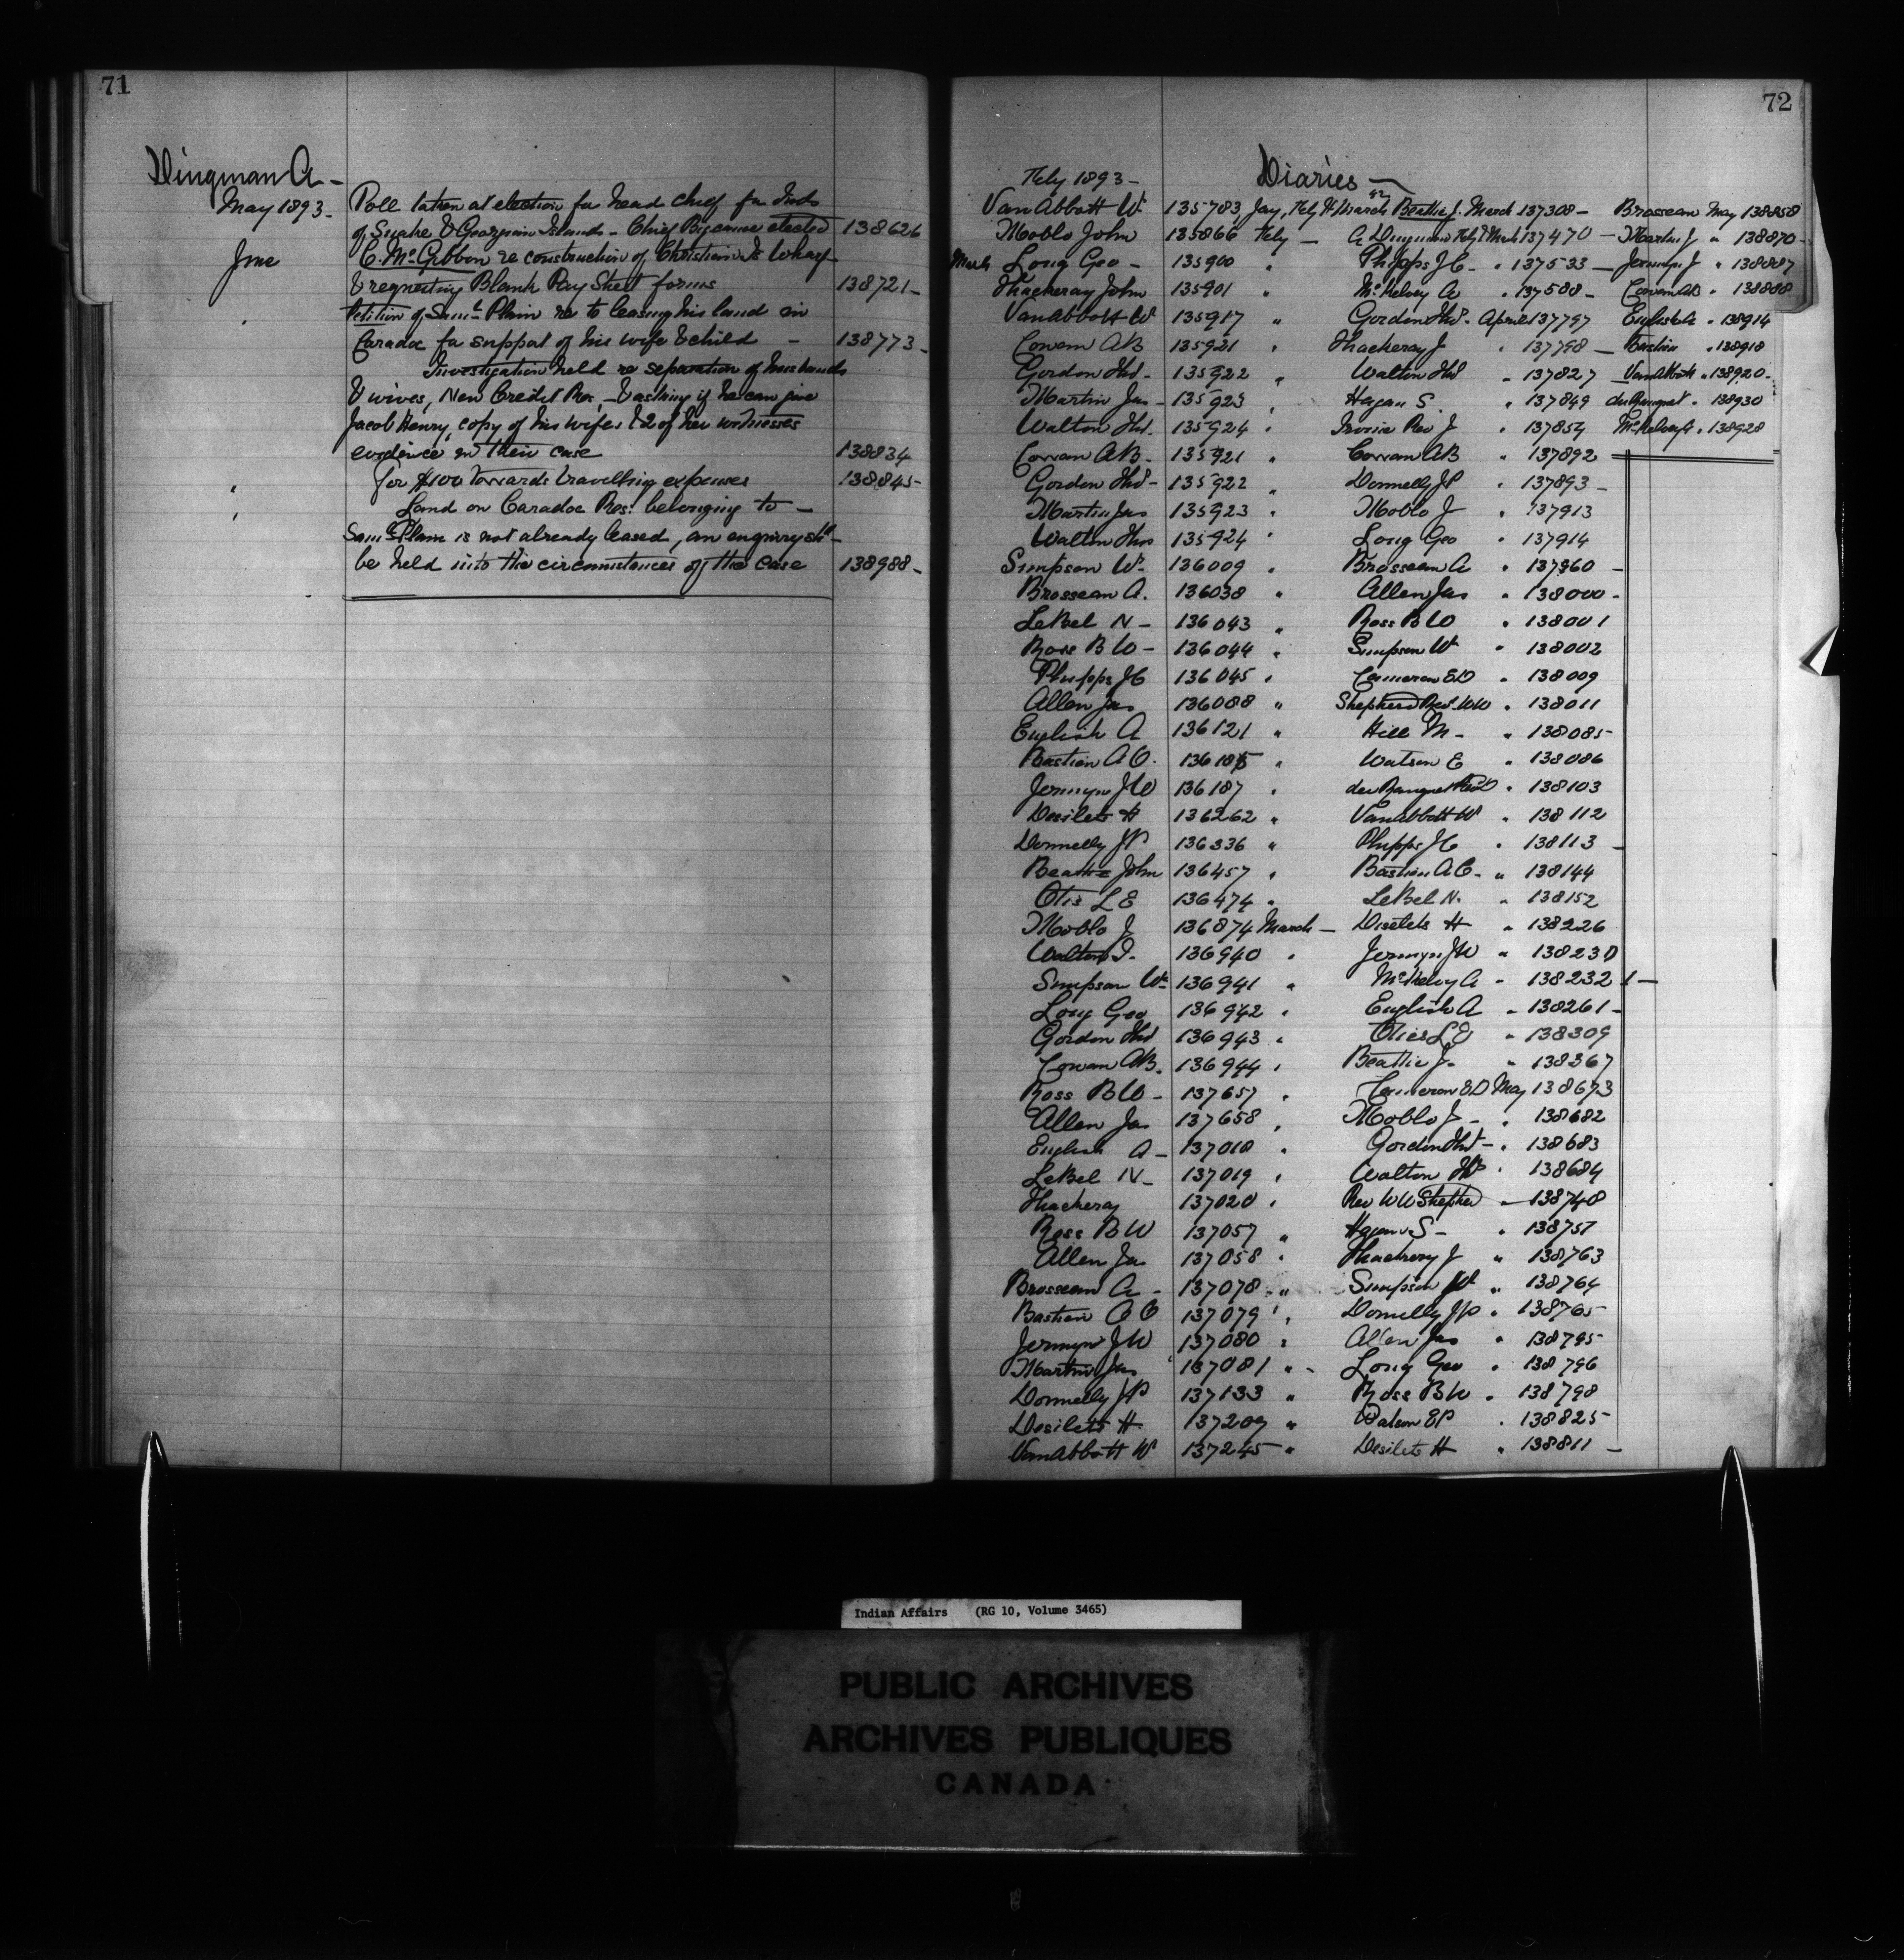 71
Dingman A -
May 1893 - Poll taken at election for head chief for Inds
of Snake & Georgian Islands - Chief Bigcanoe elected 138626
June C. McGibbon re construction of Christian Is Wharf
& requesting Blank Pay Sheet forms 138721 -
" Petition of Saml Plain re to leasing his land in
Caradoc for support of his wife & child - 138773 -
Investigation held re separation of husbands
& wives, New Credit Res, - & asking if he can give
Jacob Henry copy of his wifes & 2 of her witnesses
evidence in their case 138834
" for $100 towards travelling expenses 138845 -
" Land on Caradoc Res: belonging to -
Saml Plain is not already leased, an enquiry shd
be held into the circumstances of the case 138988 -
72
Feby 1893 - Diaries -
Van Abbott W. 135783, Jay, Feby & March Beattie J. March 137308 - Brosseau May 138858
Moblo John 135866 Feby - A Dingman Feby & March 137470 - Martin J " 138870 -
March Long Geo - 135900 " Phipps JC - " 137533 - Jermyn J " 138887
Thackeray John 135901 " McKelvey A " 137588 - Cowan AB " 138888
Van Abbott W 135917 " Gordon Thos - April 137797 English A " 138914
Cowan AB 135921 " Thackeray J " 137798 - Bastien " 138918
Gordon Thos - 135922 " Walton Thos " 137827 - Van Abbott " 138920 -
Martin Jas - 135923 " Hagan S. " 137849 du Ranquet " 138930
Walton Thos. 135924 " Irvine Rev J " 137854 McKelvey A " 138928
Cowan AB - 135921 " Cowan AB " 137892
Gordon Thos - 135922 " Donnelly JP " 137893 -
Martin Jas 135923 " Moblo J " 137913
Walton Thos 135924 " Long Geo " 137914
Simpson Wm 136009 " Brosseau A " 137960 -
Brosseau A. 136038 " Allen Jas " 138000 -
LeBel N - 136043 " Ross B W " 138001
Ross B W - 136044 " Simpson W " 138002
Phipps JC 136045 " Cameron ED " 138009
Allen Jas 136088 " Shepherd Rev. WW " 138011
English A 136121 " Hill M - " 138085 -
Bastien A O. 136185 " Watson E " 138086
Jermyn J W 136187 " du Ranquet Rev D " 138103
Desilets H 136262 " Van Abbott W " 138112
Donnelly JP 136336 " Phipps JC " 138113 -
Beattie John 136457 " Bastien A O - " 138144
Otis L E 136474 " LeBel N. " 138152
Moblo J 136874 March - Desilets H " 138226
Walton T. 136940 " Jermyn JW " 138230
Simpson Wm 136941 " McKelvey A - 138232 1 -
Long Geo 136942 " English A " 138261 -
Gordon Thos 136943 " Otis L E " 138309
Cowan AB. 136944 " Beattie J - " 138367
Ross B W - 137657 " Cameron ED May 138673
Allen Jas 137658 " Moblo J - " 138682
English A - 137018 " Gordon Thos - " 138683
LeBel N - 137019 " Walton Thos " 138684
Thackeray 137020 " Rev WW Shepherd - 138748
Ross B W 137057 " Hagan S - " 138757
Allen Jas 137058 " Thackeray J " 138763
Brosseau A - 137078 " Simpson W " 138764
Bastien A O 137079 " Donnelly JP " 138765
Jermyn J W 137080 " Allen Jas " 138795
Martin Jas 137081 " - Long Geo " 138796
Donnelly JP 137133 " Ross BW " 138798
Desilets H. 137209 " Watson EP " 138825
Van Abbott W 137245 " Desilets H " 138811 -
Indian Affairs (RG 10, Volume 3465)
PUBLIC ARCHIVES
ARCHIVES PUBLIQUES
CANADA